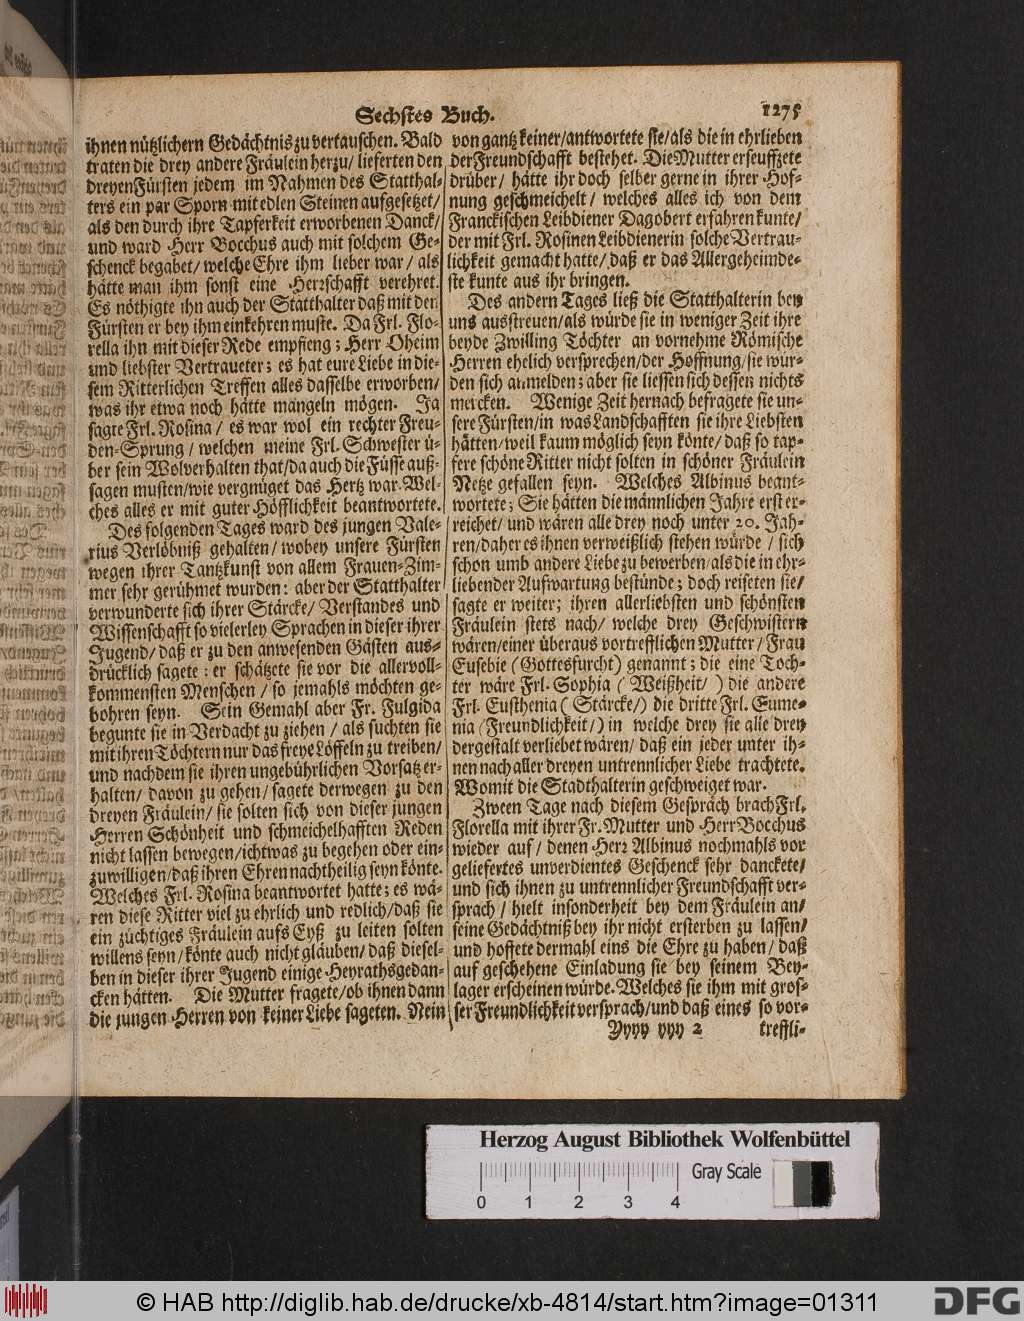 Sechstes Buch.
1275
ihnen nützlichern Gedächtnis zu vertauschen. Bald
traten die drey andere Fräulein herzu/ lieferten den
dreyen Fürsten jedem im Nahmen des Statthal-
ters ein par Sporn mit edlen Steinen aufgesetzet/
als den durch ihre Tapferkeit erworbenen Danck/
und ward Herr Bocchus auch mit solchem Ge-
schenck begabet/ welche Ehre ihm lieber war/ als
hätte man ihm sonst eine Herꝛschafft verehret.
Es nöthigte ihn auch der Statthalter daß mit den
Fürsten er bey ihm einkehren muste. Da Frl. Flo-
rella ihn mit dieser Rede empfieng; Herr Oheim
und liebster Vertraueter; es hat eure Liebe in die-
sem Ritterlichen Treffen alles dasselbe erworben/
was ihr etwa noch hätte mangeln mögen. Ja
sagte Frl. Rosina/ es war wol ein rechter Freu-
den-Sprung/ welchen meine Frl. Schwester ü-
ber sein Wolverhalten that/ da auch die Füsse auß-
sagen musten/ wie vergnüget das Hertz war. Wel-
ches alles er mit guter Höfflichkeit beantwortete.
Des folgenden Tages ward des jungen Vale-
rius Verlöbniß gehalten/ wobey unsere Fürsten
wegen ihrer Tantzkunst von allem Frauen-Zim-
mer sehr gerühmet wurden: aber der Statthalter
verwunderte sich ihrer Stärcke/ Verstandes und
Wissenschafft so vielerley Sprachen in dieser ihrer
Jugend/ daß er zu den anwesenden Gästen aus-
drücklich sagete: er schätzete sie vor die allervoll-
kommensten Menschen/ so jemahls möchten ge-
bohren seyn. Sein Gemahl aber Fr. Fulgida
begunte sie in Verdacht zu ziehen/ als suchten sie
mit ihren Töchtern nur das freye Löffeln zu treiben/
und nachdem sie ihren ungebührlichen Vorsatz er-
halten/ davon zu gehen/ sagete derwegen zu den
dreyen Fräulein/ sie solten sich von dieser jungen
Herren Schönheit und schmeichelhafften Reden
nicht lassen bewegen/ ichtwas zu begehen oder ein-
zuwilligen/ daß ihren Ehren nachtheilig seyn könte.
Welches Frl. Rosina beantwortet hatte; es wä-
ren diese Ritter viel zu ehrlich und redlich/ daß sie
ein züchtiges Fräulein aufs Eyß zu leiten solten
willens seyn/ könte auch nicht gläuben/ daß diesel-
ben in dieser ihrer Jugend einige Heyrathsgedan-
cken hätten. Die Mutter fragete/ ob ihnen dann
die jungen Herren von keiner Liebe sageten. Nein
von gantz keiner/ antwortete sie/ als die in ehrlieben
der Freundschafft bestehet. Die Mutter erseuffzete
drüber/ hätte ihr doch selber gerne in ihrer Hof-
nung geschmeichelt/ welches alles ich von dem
Franckischen Leibdiener Dagobert erfahren kunte/
der mit Frl. Rosinen Leibdienerin solche Vertrau-
lichkeit gemacht hatte/ daß er das Allergeheimde-
ste kunte aus ihr bringen.
Des andern Tages ließ die Statthalterin bey
uns ausstreuen/ als würde sie in weniger Zeit ihre
beyde Zwilling Töchter an vornehme Römische
Herren ehelich versprechen/ der Hoffnung/ sie wür-
den sich anmelden; aber sie liessen sich dessen nichts
mercken. Wenige Zeit hernach befragete sie un-
sere Fürsten/ in was Landschafften sie ihre Liebsten
hätten/ weil kaum möglich seyn könte/ daß so tap-
fere schöne Ritter nicht solten in schöner Fräulein
Netze gefallen seyn. Welches Albinus beant-
wortete; Sie hätten die männlichen Jahre erst er-
reichet/ und wären alle drey noch unter 20. Jah-
ren/ daher es ihnen verweißlich stehen würde/ sich
schon umb andere Liebe zu bewerben/ als die in ehr-
liebender Aufwartung bestünde; doch reiseten sie/
sagte er weiter; ihren allerliebsten und schönsten
Fräulein stets nach/ welche drey Geschwistern
wären/ einer überaus vortrefflichen Mutter/ Frau
Eusebie (Gottesfurcht) genannt; die eine Toch-
ter wäre Frl. Sophia (Weißheit/) die andere
Frl. Eusthenia (Stärcke/) die dritte Frl. Eume-
nia (Freundlichkeit/) in welche drey sie alle drey
dergestalt verliebet wären/ daß ein jeder unter ih-
nen nach aller dreyen untrennlicher Liebe trachtete.
Womit die Stadthalterin geschweiget war.
Zween Tage nach diesem Gespräch brach Frl.
Florella mit ihrer Fr. Mutter und Herr Bocchus
wieder auf/ denen Herꝛ Albinus nochmahls vor
geliefertes unverdientes Geschenck sehr danckete/
und sich ihnen zu untrennlicher Freundschafft ver-
sprach/ hielt insonderheit bey dem Fräulein an/
seine Gedächtniß bey ihr nicht ersterben zu lassen/
und hoffete dermahl eins die Ehre zu haben/ daß
auf geschehene Einladung sie bey seinem Bey-
lager erscheinen würde. Welches sie ihm mit gros-
ser Freundlichkeit versprach/ und daß eines so vor-
Yyyy yyy 2
treffli-
Herzog August Bibliothek Wolfenbüttel
Gray Scale
0 1 2 3 4
© HAB http://diglib.hab.de/drucke/xb-4814/start.htm?image=01311
DFG